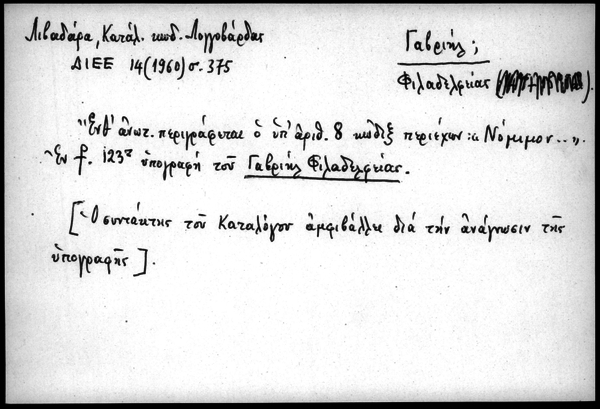 Λιβαδάρα, Κατάλ. κωδ. Λογγοβάρδας
ΔΙΕΕ 14 (1960) σ. 375
Γαβριήλ;
Φιλαδελφείας ( ).
"Ἔνθ' ἀνωτ. περιγράφεται ὁ ὑπ' ἀριθ. 8 κῶδιξ περιέχων: "Νόμιμον..".
Ἐν f. 123r ὑπογραφὴ τοῦ Γαβριὴλ Φιλαδελφείας.
[Ὁ συντάκτης τοῦ Καταλόγου ἀμφιβάλλει διὰ τὴν ἀνάγνωσιν τῆς
ὑπογραφῆς].